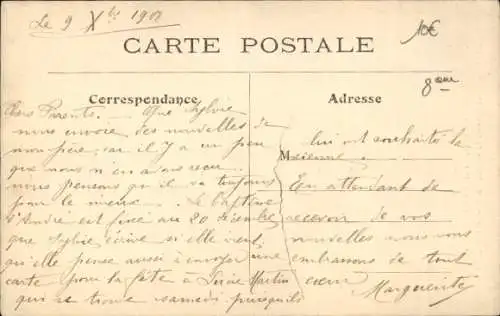 Le 9 Xbre 190
10€
CARTE POSTALE
8eme
Correspondance
Adresse
Chers Parents. — Que Sylvie
nous envoie des nouvelles de
mon père, car il y a un peu
que nous n'en avons reçu.
nous pensons qu'il va toujours
pour le mieux. — Le Baptême
d'André est fixé au 20 décembre
que Sylvie écrive si elle veut,
qu'elle pense aussi à envoyer une
carte pour la fête à Lucie Martin
qui se trouve samedi puisqu'ils
lui ont souhaité la
M sienne.
En attendant de
recevoir de vos
nouvelles nous vous
embrassons de tout
cœur Marguerite